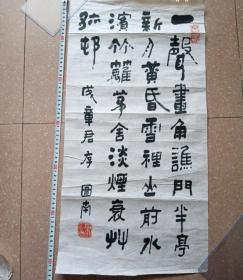 一聲畫角譙門半亭
新月黄昏雪裡山前水
濱竹籬茅舍淡煙衰艸
孤邨
成章君存 圖南